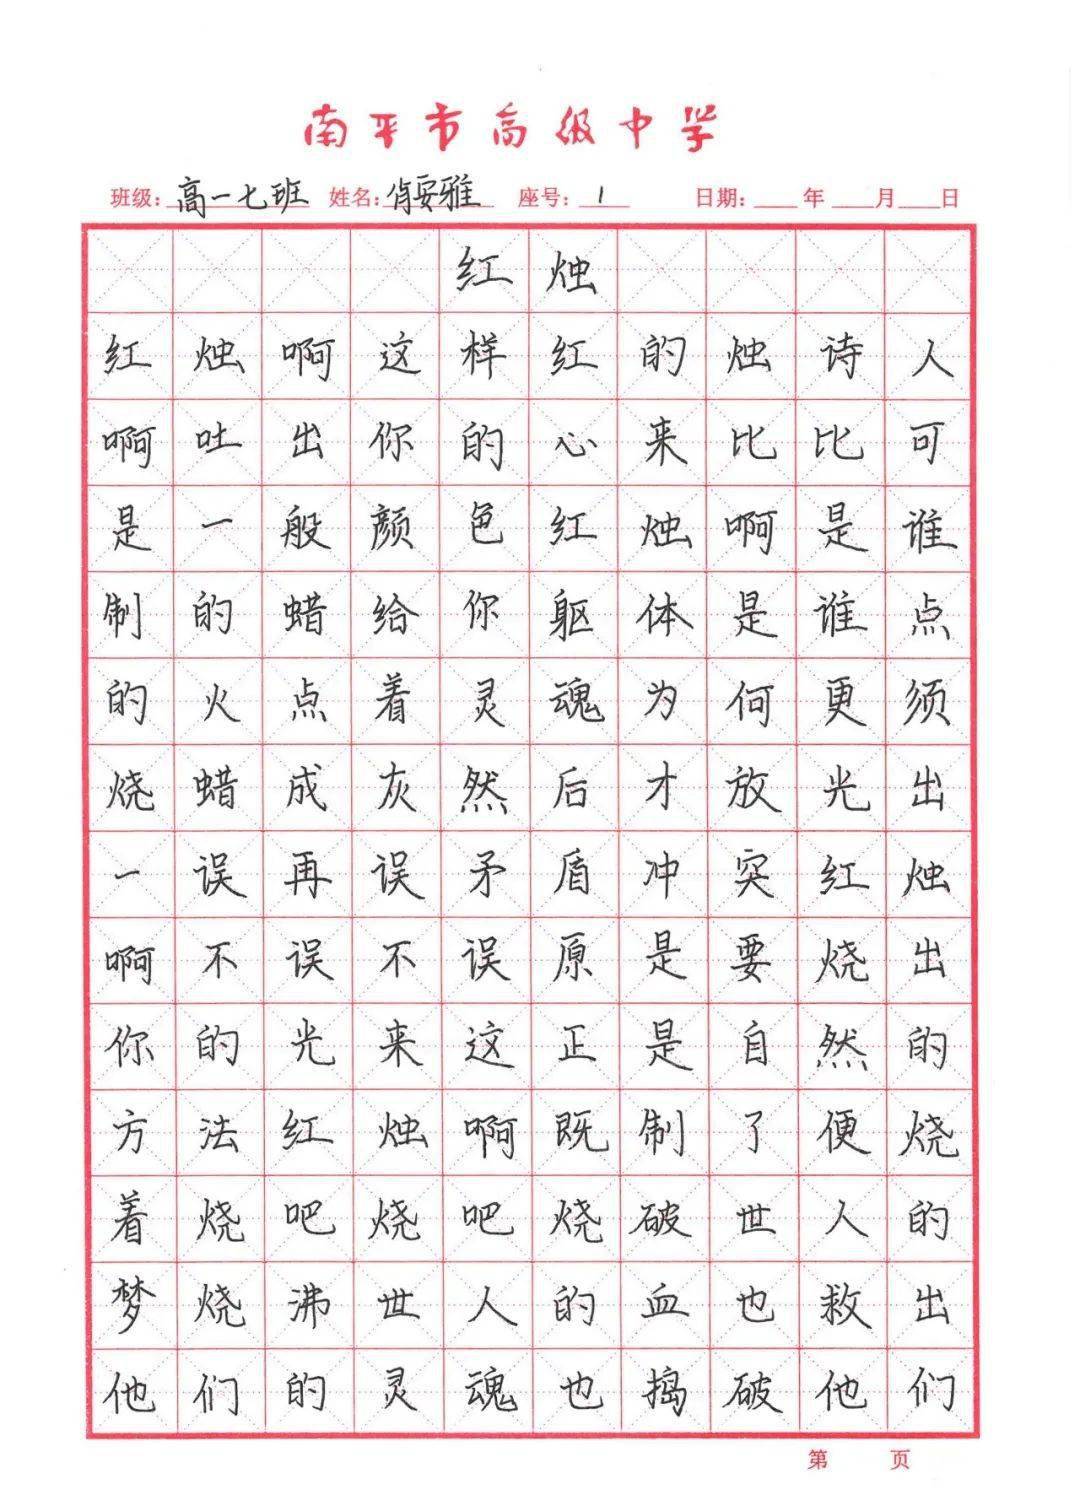 南平市高级中学
班级:高一七班 姓名:肖安雅 座号:1 日期: 年 月 日
红烛
红烛啊这样红的烛诗人
啊吐出你的心来比比可
是一般颜色红烛啊是谁
制的蜡给你躯体是谁点
的火点着灵魂为何更须
烧蜡成灰然后才放光出
一误再误矛盾冲突红烛
啊不误不误原是要烧出
你的光来这正是自然的
方法红烛啊既制了便烧
着烧吧烧吧烧破世人的
梦烧沸世人的血也救出
他们的灵魂也捣破他们
第 页